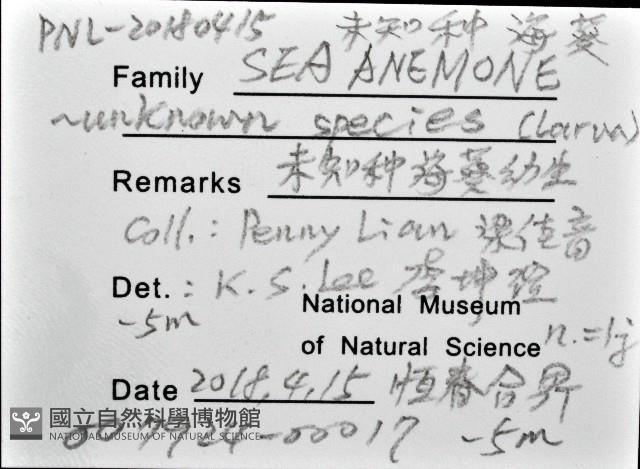 PNL-20180415 未知种海葵
Family SEA ANEMONE
~unknown species (Larva)
Remarks 未知种海葵幼生
Coll.: Penny Lian 梁佳音
Det.: K.S. Lee 李坤瑄
-5m National Museum
of Natural Science n.=1
Date 2018.4.15 恆春合界
國立自然科學博物館
NATIONAL MUSEUM OF NATURAL SCIENCE
-00017 -5m